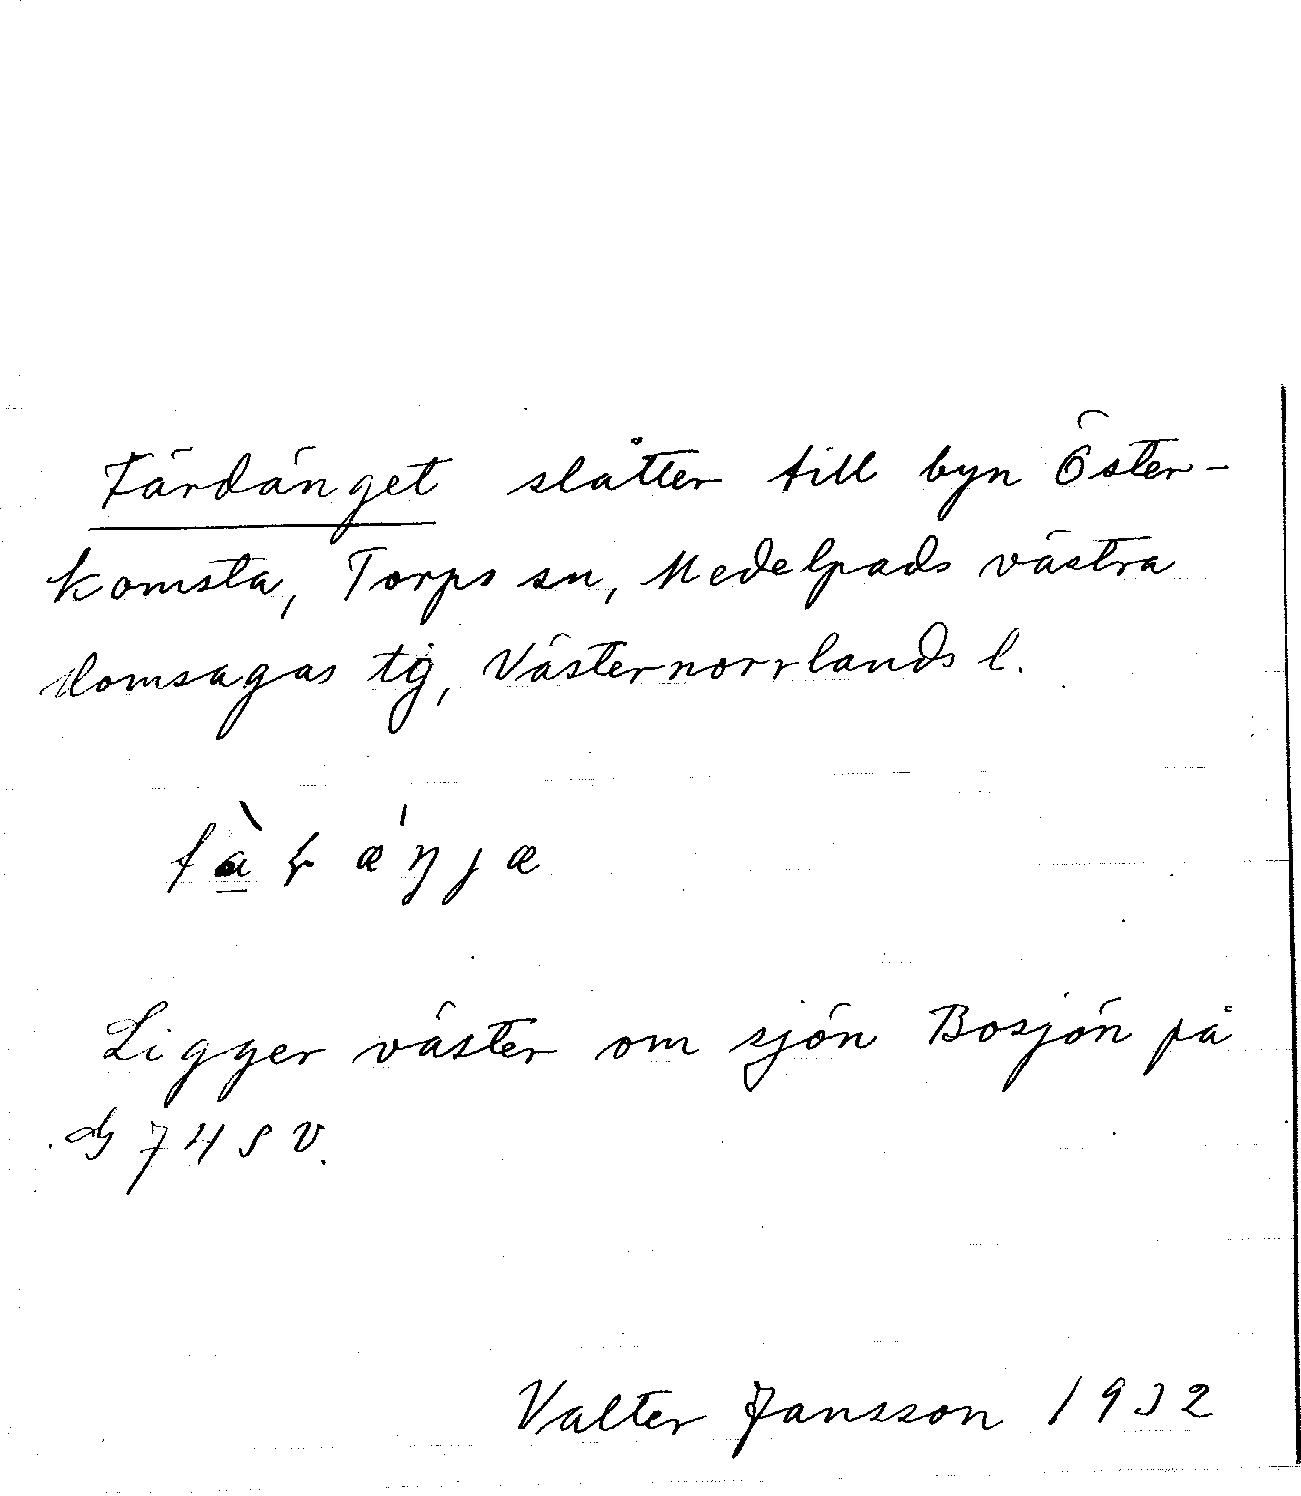 Färdänget slåtter till byn Öster-
komsta, Torps sn, Medelpads västra
domsagas tg, Västernorrlands l.
Ligger väster om sjön Bosjön på
74 SV.
Valter Jansson 1932